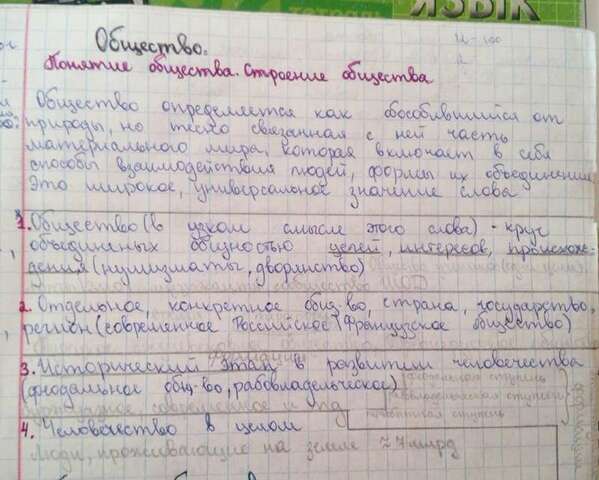 ЯЗЫК
Общество.
Понятие общества. Строение общества
Общество определяется как обособившийся от
природы, но тесно связанная с ней часть
материального мира, которая включает в себя
способы взаимодействия людей, формы их объединения
Это широкое, универсальное значение слова
1. Общество (в узком смысле этого слова) - круг
объединённых общностью целей, интересов, происхож-
дения (нумизматы, дворянство)
2. Отдельное, конкретное общ-во, страна, государство,
регион (современное Российское, Французское общество)
3. Исторический этап в развитии человечества
(феодальное общ-во, рабовладельческое)
4. Человечество в целом
Люди, проживающие на земле ≈ 7 млрд